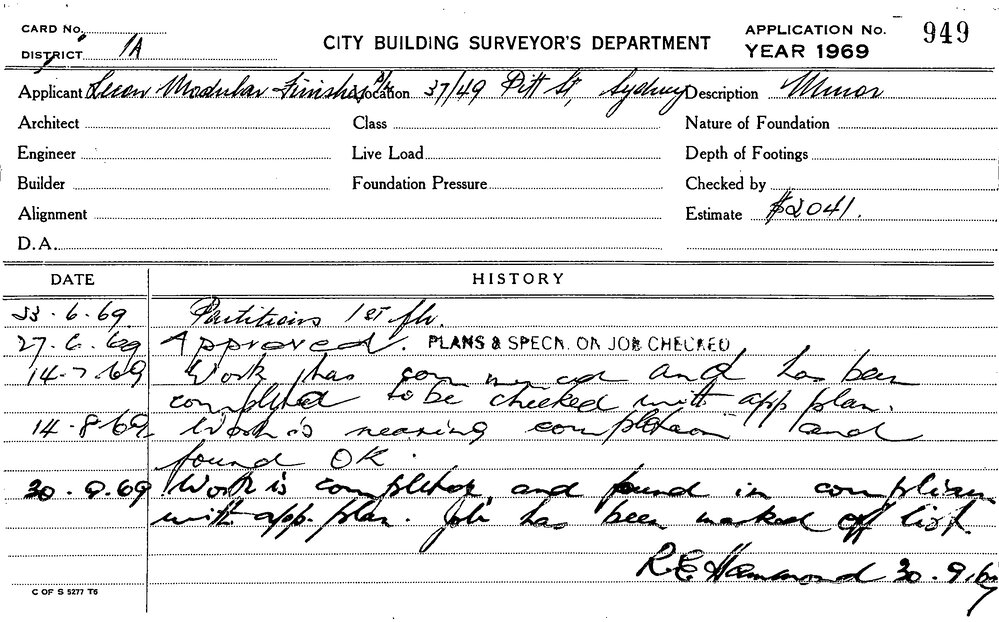 CARD No.
DISTRICT 1A
CITY BUILDING SURVEYOR'S DEPARTMENT
APPLICATION No. 949
YEAR 1969
Applicant Modular Finishes P/L Location 37/49 Pitt St, Sydney Description Minor
Architect Class Nature of Foundation
Engineer Live Load Depth of Footings
Builder Foundation Pressure Checked by
Alignment Estimate $2041.
D.A.
DATE HISTORY
6.69 Partitions 1st flr.
27.6.69 Approved. PLANS & SPECN. ON JOB CHECKED
14-7-69 Work has commenced and has been
completed to be checked with app plan.
14-8-69 Work is nearing completion and
found OK.
30.9.69 Work is completed, and found in complian
with app. plan. Job has been marked off list.
R.E. Hammond 30.9.69
C OF S 5277 T6